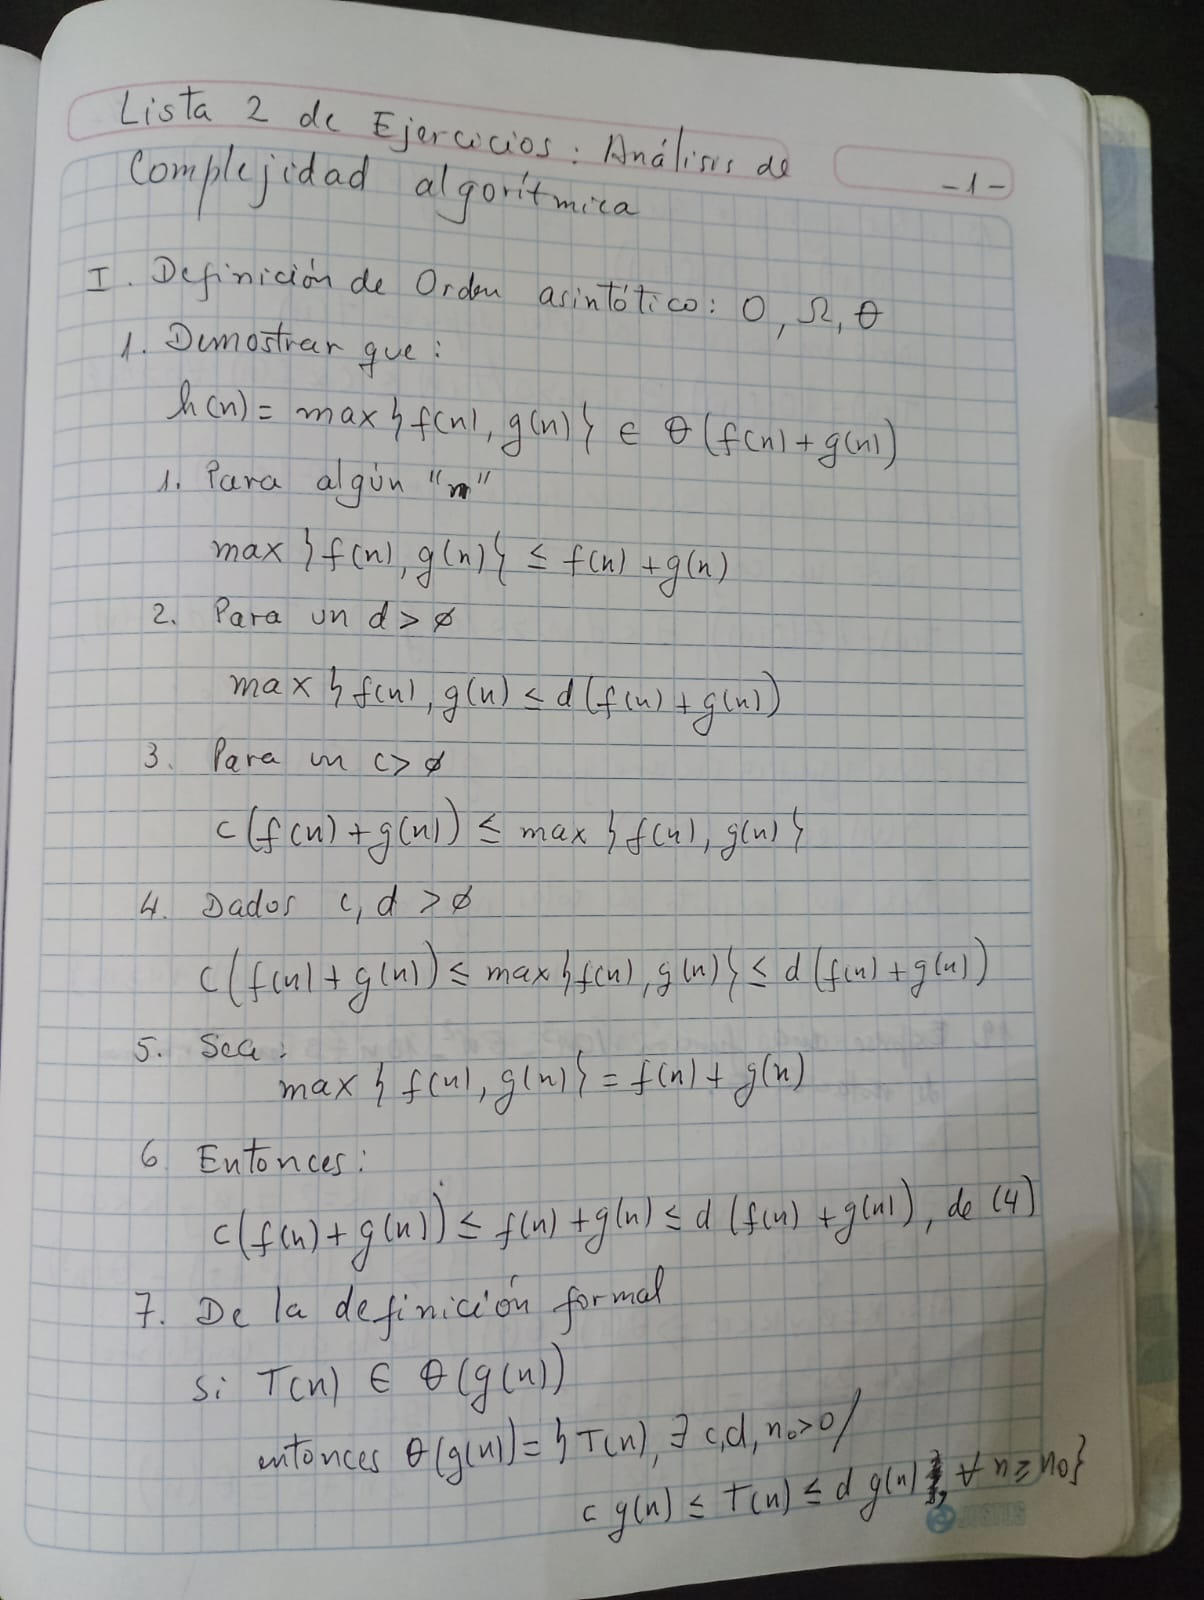 Lista 2 de Ejercicios: Análisis de
Complejidad algorítmica
-1-
I. Definición de Orden asintótico: O, Ω, θ
1. Demostrar que:
h(n) = max{f(n), g(n)} ∈ θ(f(n)+g(n))
1. Para algún "n"
max {f(n), g(n)} ≤ f(n)+g(n)
2. Para un d>0
max {f(n), g(n) ≤ d(f(n)+g(n))
3. Para un c>0
c(f(n)+g(n)) ≤ max {f(n), g(n)}
4. Dados c, d >0
c(f(n)+g(n)) ≤ max{f(n), g(n)} ≤ d(f(n)+g(n))
5. Sea:
max {f(n), g(n)} = f(n)+g(n)
6 Entonces:
c(f(n)+g(n)) ≤ f(n)+g(n) ≤ d(f(n)+g(n)), de (4)
7. De la definición formal
si T(n) ∈ θ(g(n))
entonces θ(g(n)) = {T(n), ∃ c,d, n₀>0/
c g(n) ≤ T(n) ≤ d g(n), ∀ n≥n₀}